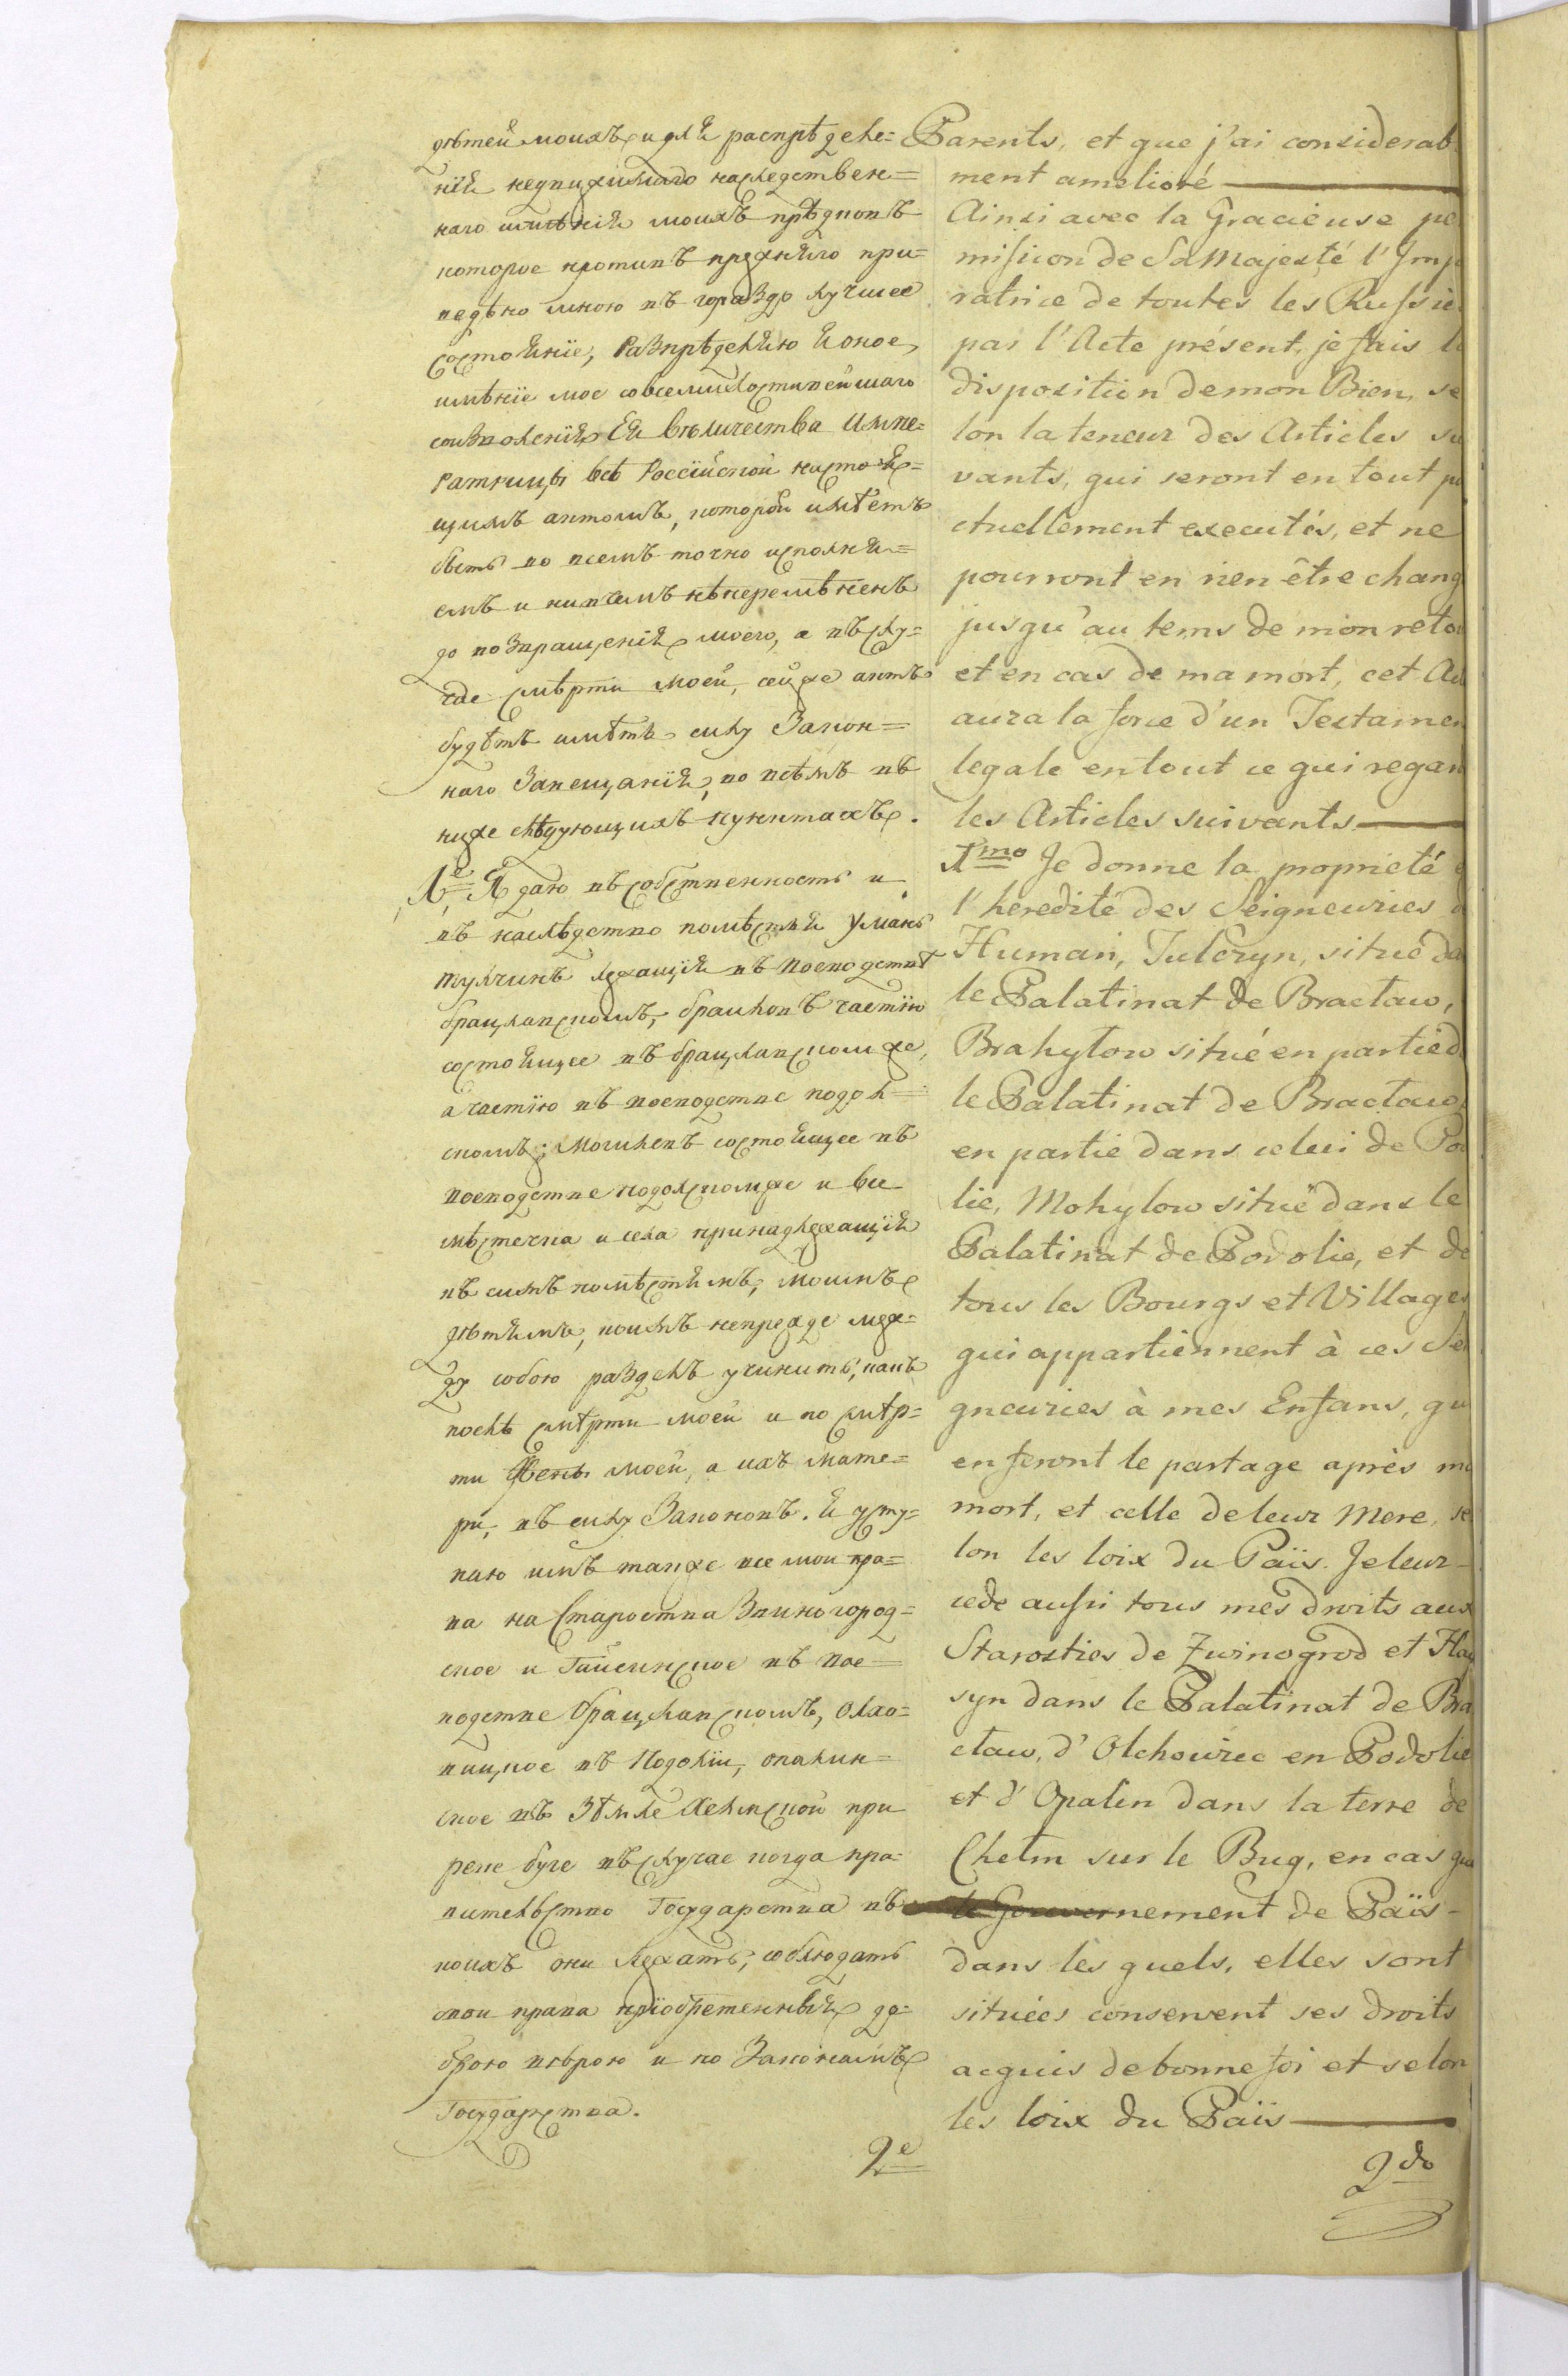 дѣтей моихъ, и для распрѣделе=
нія недвижимаго наследствен=
наго имѣнія моихъ прѣдковъ
которое противъ прежнѣго при=
ведѣно мною въ гораздо лучшее
состояніе, Разпрѣделяю я оное,
имѣніе мое со всемилостивейшаго
соизволенія Ея Вѣличества Импе=
ратрицы всѣ Россійской настоя=
щимъ актомъ, которои имѣетъ
быть во всемъ точно исполня=
емъ и ни в чемъ нѣперемѣненъ
до возвращенія моего, а въ слу=
чае смѣрти моей, сей же актъ
будѣтъ имѣть силу Закон=
наго Завещанія, во всѣмъ въ
ниже слѣдующихъ пунктахъ.
1.е Я даю въ собственность и
въ наслѣдство помѣстья Умань
тулчинъ лежащія въ воеводствѣ
брацлавскомъ, браиловъ частію
состоящее въ брацлавскомъ же,
а частію въ воеводстве подол=
скомъ; Могилевъ состоящее въ
воеводстве подолскомже и все
мѣстечка и села принадлежащія
къ симъ помѣстьямъ, моимъ
дѣтямъ, коимъ непрежде меж=
ду собою разделъ учинить, какъ
послѣ смѣрти моей и по смѣр=
ти Жены моей, а ихъ мате=
ри, въ силу Законовъ. Я усту=
паю имъ также все мои пра=
ва на Староства Звиногород=
ское и Гайсинское въ вое=
водстве брацлавскомъ, олхо=
вицкое въ Подоліи, опалин=
ское въ Зѣмле Хелмской при
реке буге въ случае когда пра=
вителѣство Государства въ
коихъ они лежатъ, соблюдатъ
мои права пріобретенныя до=
брою вѣрою и по Законамъ
Государства.
2е
Parents, et que j'ai considerab
ment amelioré
Ainsi avec la Gracieuse pe
mission de Sa Majesté l'Imp
ratrice de toutes les Russie
par l'Acte présent, je fais l
disposition de mon Bien, se
lon la teneur des Articles su
vants, qui seront en tout p
ctuellement executés, et ne
pourront en rien être chang
jusqu'au tems de mon reto
et en cas de ma mort, cet Ac
aura la force d'un Testamen
legale en tout ce qui regar
les Articles suivants
1mo Je donne la proprieté
l'heredité des Seigneuries d
Human, Tulczyn, situé da
le Palatinat de Braclaw,
Brahylow situé en partie d
le Palatinat de Braclaw,
en partie dans celui de Po
lie, Mohylow situé dans le
Palatinat de Podolie, et de
tous les Bourgs et Villages
qui appartiennent à ces Sei
gneuries à mes Enfans, qu
en feront le partage après ma
mort, et celle de leur Mere, se
lon les loix du Païs. Je leur
cede aussi tous mes droits aux
Starosties de Zwinogrod et Hay
syn dans le Palatinat de Bra
claw, d'Olchowiec en Podolie
et d'Opalin dans la terre de
Chelm sur le Bug, en cas que
le Gouvernement de Païs
dans les quels, elles sont
situées conservent ses droits
acquis de bonne foi et selon
les loix du Païs
2do